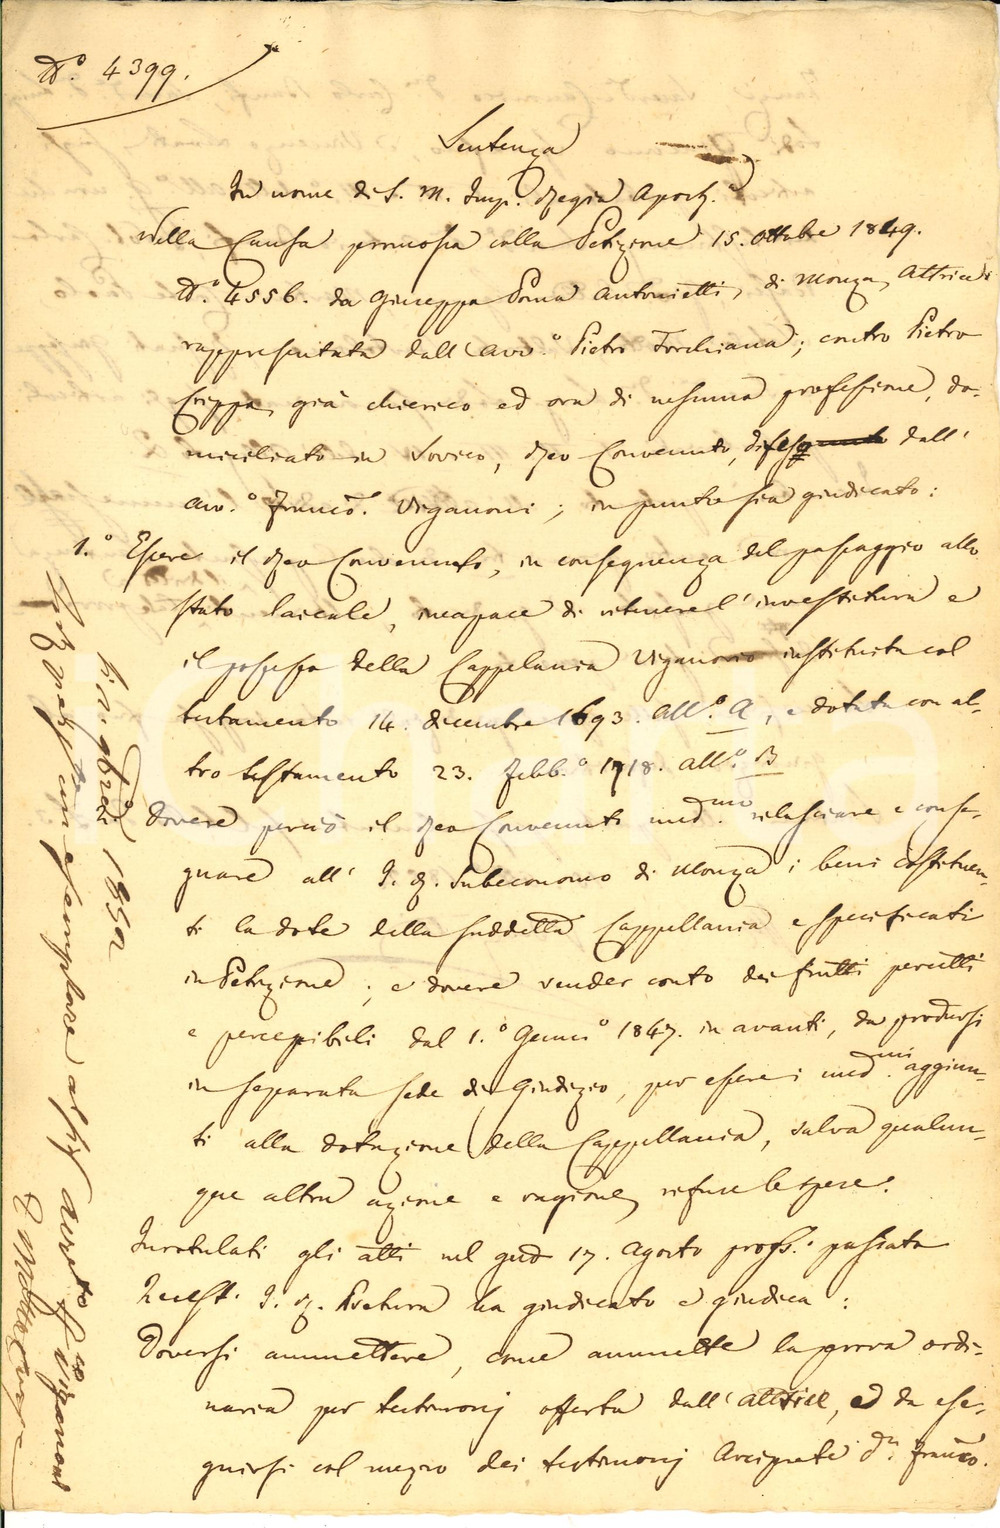 N.° 4399.
Sentenza
In nome di S. M. Imp. Regia Apost.ª
Nella Causa promossa colla Petizione 15. Ottobre 1849.
N.° 4556. da Giuseppa Poma Antonietti, di Monza, Attrice
rappresentata dall'avv.° Pietro Torchiana; contro Pietro
Crippa, già chierico ed ora di nessuna professione, do-
miciliato in Sovico, Reo Convenuto, difeso dall'
avv.° Franco. Viganoni; in punto sia giudicato:
1.° Essere il Reo Convenuto, in conseguenza del passaggio allo
stato laicale, incapace di ritenere l'investitura e
il possesso della Cappellania Viganò instituita col
testamento 14. dicembre 1693. All.° A, e dotata con al-
tro testamento 23. Febb.° 1718. all.° B
2.° Dovere perciò il Reo Convenuto med.mo rilasciare e conse-
gnare all' I. R. Subeconomo di Monza i beni costituen-
ti la dote della suddetta Cappellania e specificati
in Petizione; e dovere render conto dei frutti percetti
e percepibili dal 1.° Genn.° 1847. in avanti, da prodursi
in separata sede di Giudizio, per essere i med.mi aggiun-
ti alla dotazione della Cappellania, salva qualun-
que altra azione e ragione, rifuse le spese.
Inrotulati gli atti nel gno 17. Agosto pross.° passato
Quest' I. R. Pretura ha giudicato e giudica:
Doversi ammettere, come ammette la prova ordi-
naria per testimonj offerta dall'attrice, ed da ese-
guirsi col mezzo dei testimonj Arciprete D.n Franco.
1850
un esemplare all' avvocato Viganoni